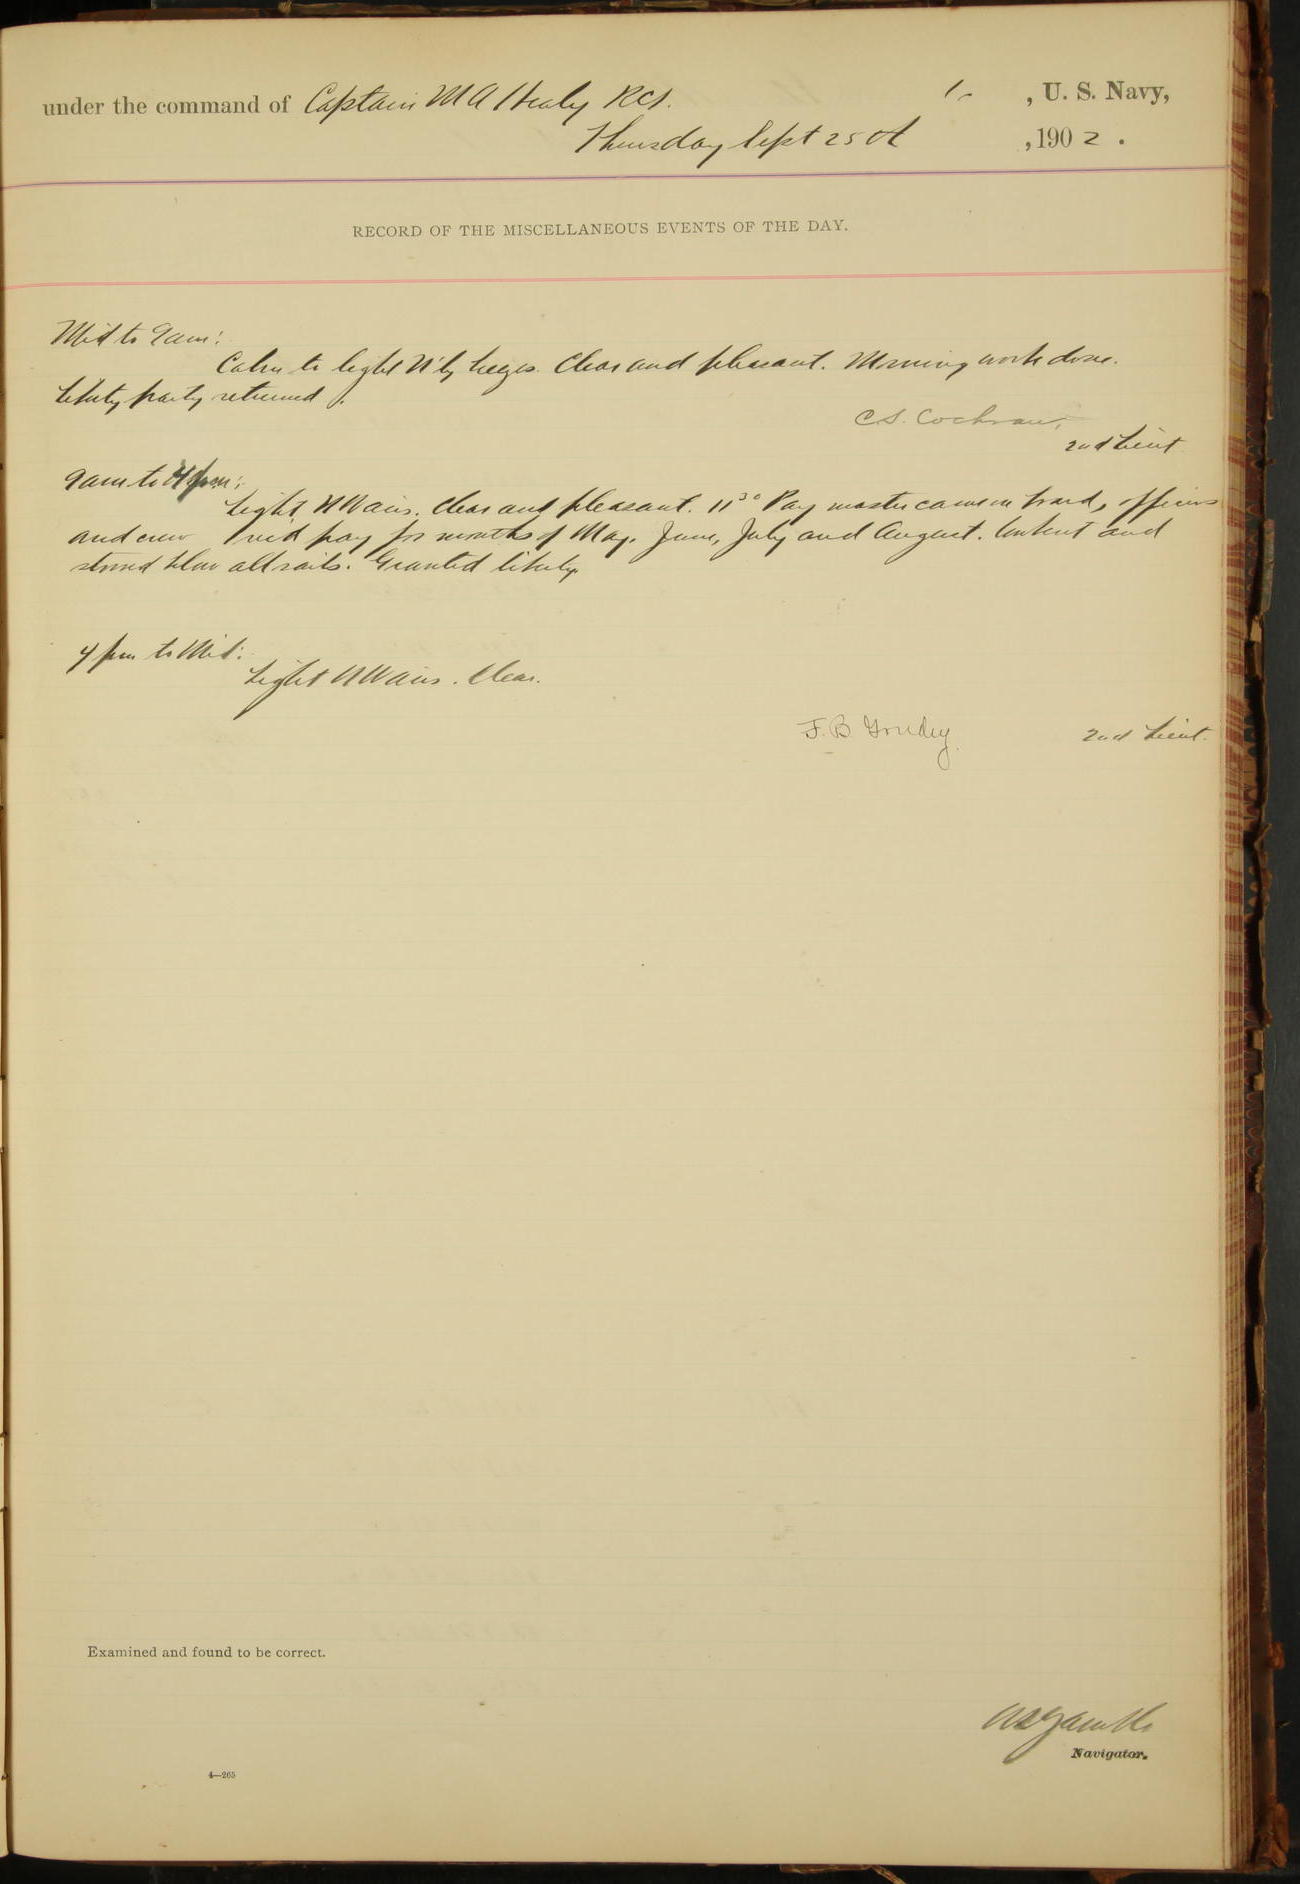 under the command of Captain M A Healy RCS. , U. S. Navy,
Thursday Sept 25th , 1902.
RECORD OF THE MISCELLANEOUS EVENTS OF THE DAY.
Mid to 9am:
Calm to light N'ly breezes. Clear and pleasant. Morning work done.
Liberty party returned.
C.S. Cochran,
2nd Lieut
9am to 4pm:
Light NW airs. Clear and pleasant. 11 30 Pay master came on board, officers
and crew rec'd pay for months of May, June, July and August. Unbent and
stowed below all sails. Granted liberty.
4 pm to Mid:
Light NW airs. Clear.
F. B. Goudey 2nd Lieut.
Examined and found to be correct.
Navigator.
4—265